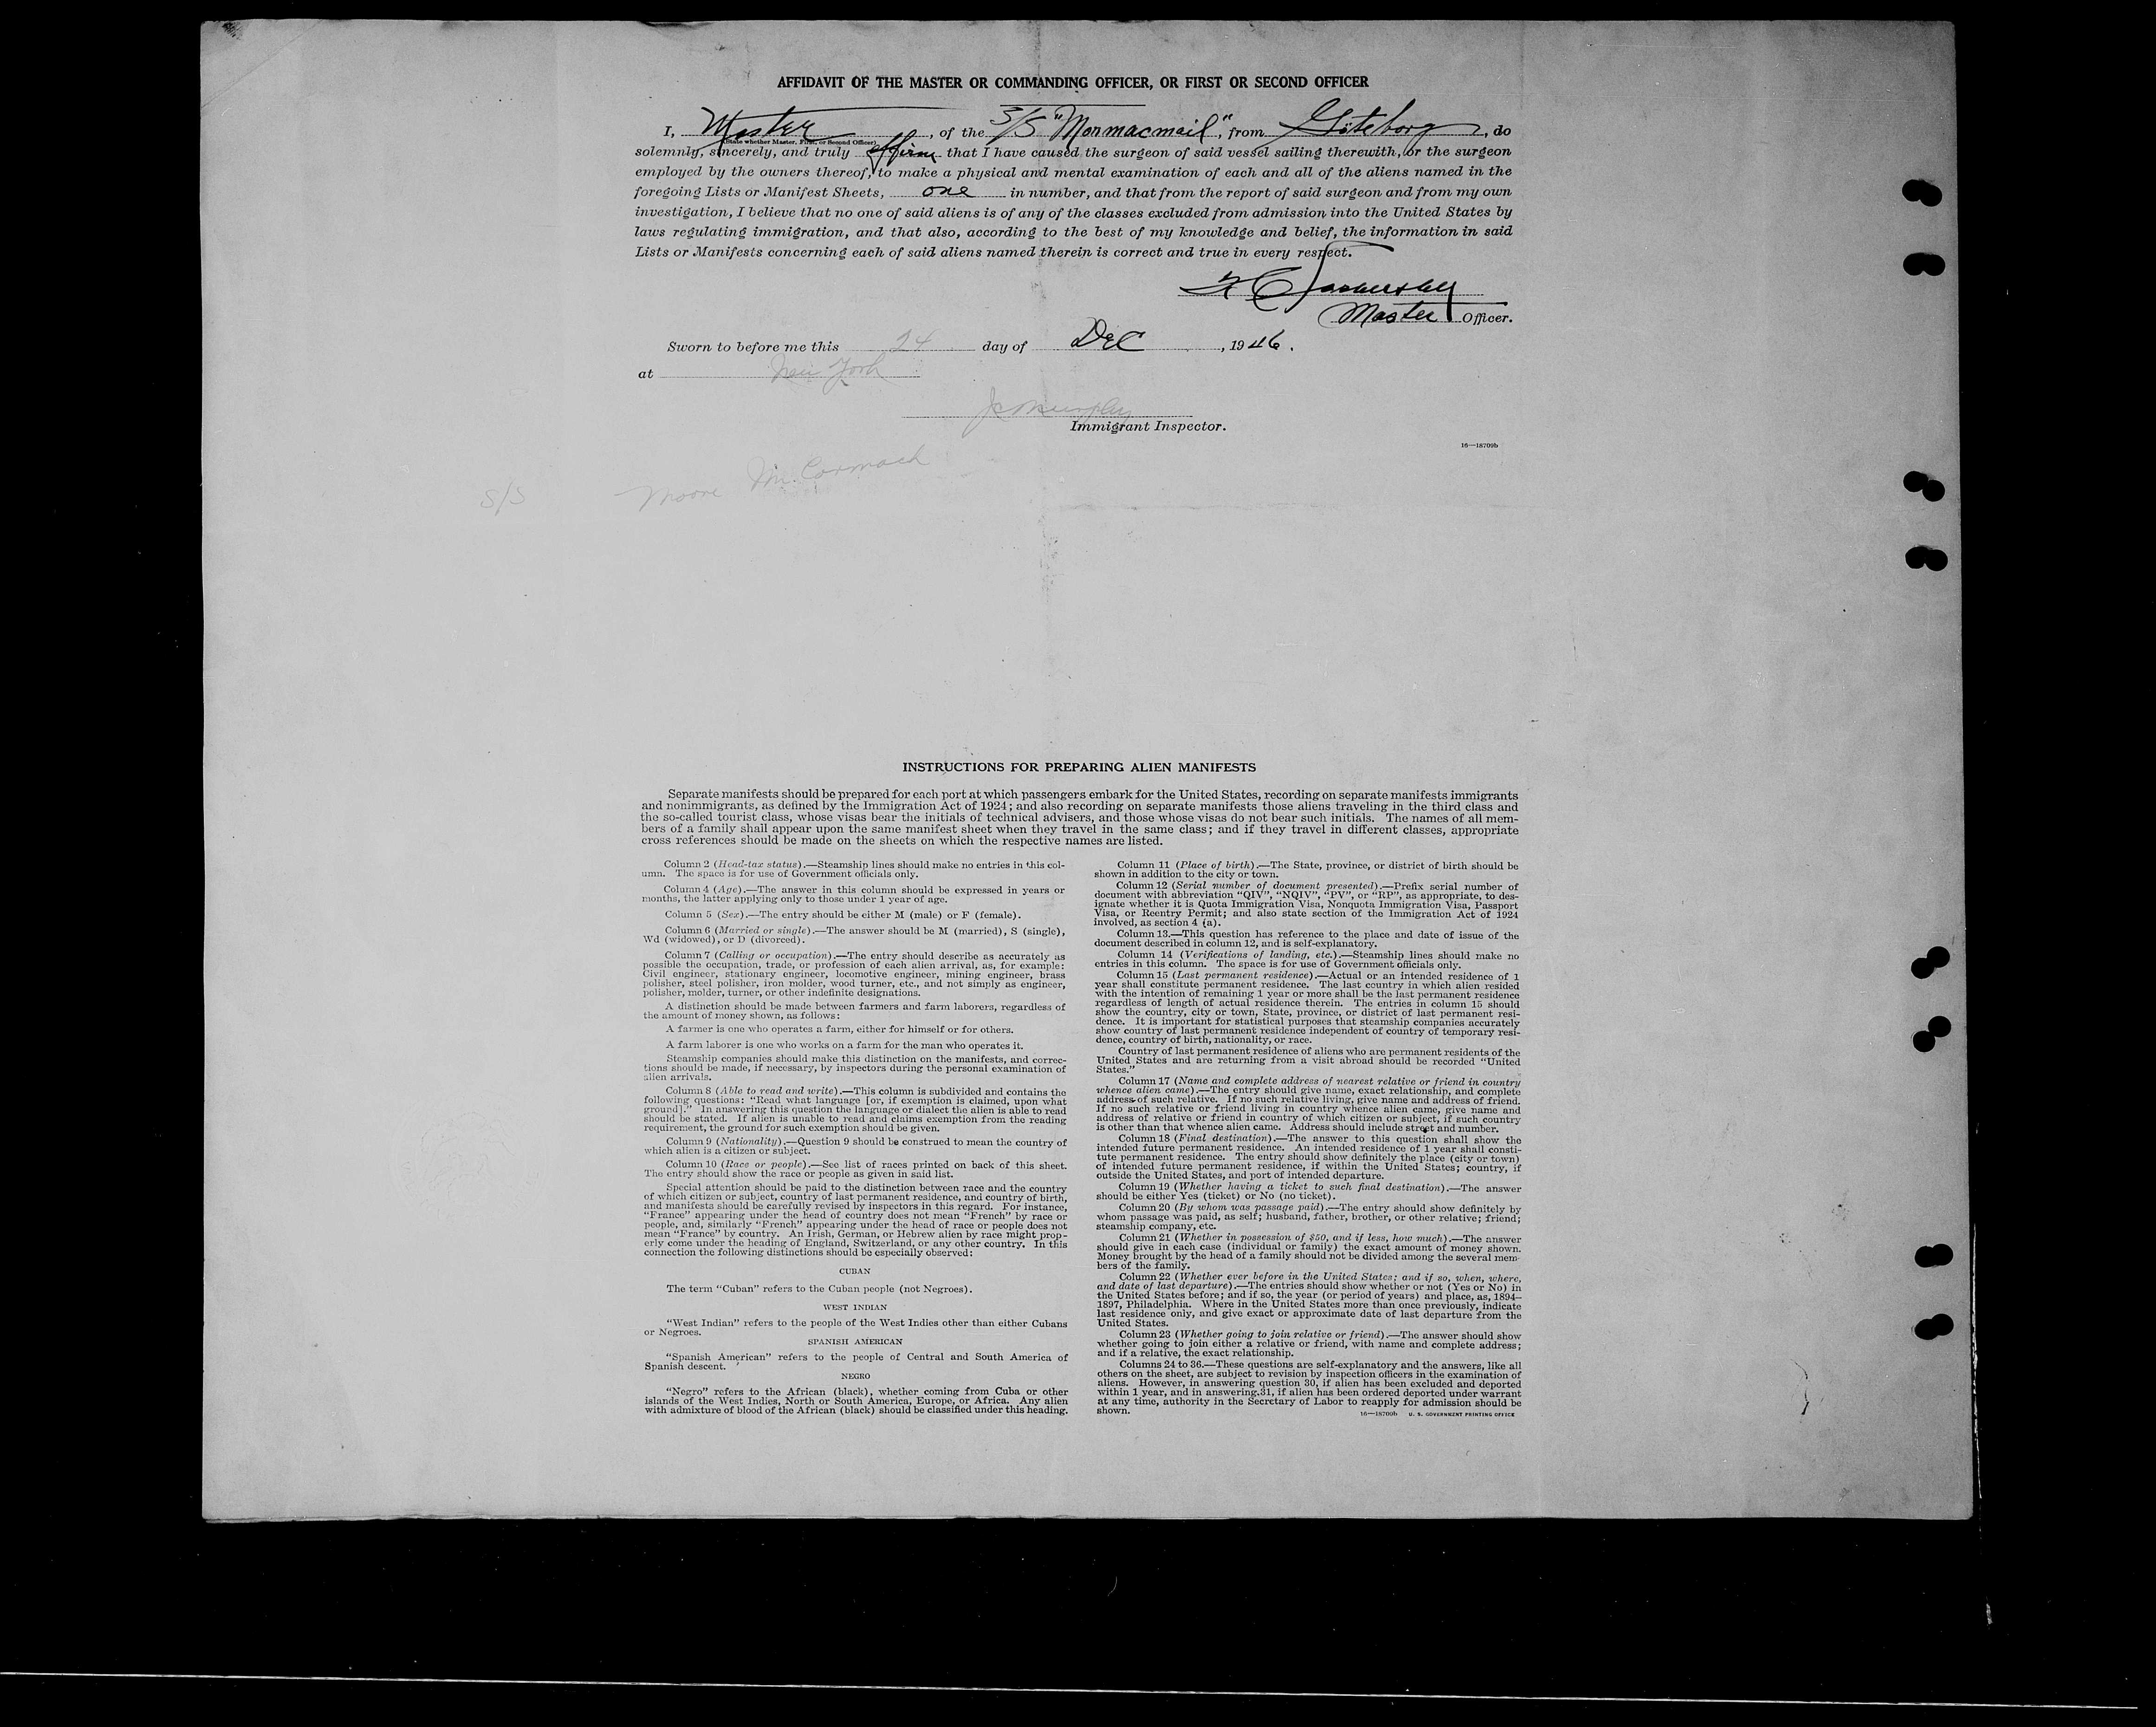 AFFIDAVIT OF THE MASTER OR COMMANDING OFFICER, OR FIRST OR SECOND OFFICER
I, Master, of the S/S "Mormacmail", from Göteborg, do
(State whether Master, First, or Second Officer)
solemnly, sincerely, and truly affirm that I have caused the surgeon of said vessel sailing therewith, or the surgeon
employed by the owners thereof, to make a physical and mental examination of each and all of the aliens named in the
foregoing Lists or Manifest Sheets, one in number, and that from the report of said surgeon and from my own
investigation, I believe that no one of said aliens is of any of the classes excluded from admission into the United States by
laws regulating immigration, and that also, according to the best of my knowledge and belief, the information in said
Lists or Manifests concerning each of said aliens named therein is correct and true in every respect.
Master Officer.
Sworn to before me this 24 day of Dec, 1946.
at New York
Immigrant Inspector.
16—18709b
S/S Moore McCormack
INSTRUCTIONS FOR PREPARING ALIEN MANIFESTS
Separate manifests should be prepared for each port at which passengers embark for the United States, recording on separate manifests immigrants
and nonimmigrants, as defined by the Immigration Act of 1924; and also recording on separate manifests those aliens traveling in the third class and
the so-called tourist class, whose visas bear the initials of technical advisers, and those whose visas do not bear such initials. The names of all mem-
bers of a family shall appear upon the same manifest sheet when they travel in the same class; and if they travel in different classes, appropriate
cross references should be made on the sheets on which the respective names are listed.
Column 2 (Head-tax status).—Steamship lines should make no entries in this col-
umn. The space is for use of Government officials only.
Column 4 (Age).—The answer in this column should be expressed in years or
months, the latter applying only to those under 1 year of age.
Column 5 (Sex).—The entry should be either M (male) or F (female).
Column 6 (Married or single).—The answer should be M (married), S (single),
Wd (widowed), or D (divorced).
Column 7 (Calling or occupation).—The entry should describe as accurately as
possible the occupation, trade, or profession of each alien arrival, as, for example:
Civil engineer, stationary engineer, locomotive engineer, mining engineer, brass
polisher, steel polisher, iron molder, wood turner, etc., and not simply as engineer,
polisher, molder, turner, or other indefinite designations.
A distinction should be made between farmers and farm laborers, regardless of
the amount of money shown, as follows:
A farmer is one who operates a farm, either for himself or for others.
A farm laborer is one who works on a farm for the man who operates it.
Steamship companies should make this distinction on the manifests, and correc-
tions should be made, if necessary, by inspectors during the personal examination of
alien arrivals.
Column 8 (Able to read and write).—This column is subdivided and contains the
following questions: "Read what language [or, if exemption is claimed, upon what
ground]." In answering this question the language or dialect the alien is able to read
should be stated. If alien is unable to read and claims exemption from the reading
requirement, the ground for such exemption should be given.
Column 9 (Nationality).—Question 9 should be construed to mean the country of
which alien is a citizen or subject.
Column 10 (Race or people).—See list of races printed on back of this sheet.
The entry should show the race or people as given in said list.
Special attention should be paid to the distinction between race and the country
of which citizen or subject, country of last permanent residence, and country of birth,
and manifests should be carefully revised by inspectors in this regard. For instance,
"France" appearing under the head of country does not mean "French" by race or
people, and, similarly "French" appearing under the head of race or people does not
mean "France" by country. An Irish, German, or Hebrew alien by race might prop-
erly come under the heading of England, Switzerland, or any other country. In this
connection the following distinctions should be especially observed:
CUBAN
The term "Cuban" refers to the Cuban people (not Negroes).
WEST INDIAN
"West Indian" refers to the people of the West Indies other than either Cubans
or Negroes.
SPANISH AMERICAN
"Spanish American" refers to the people of Central and South America of
Spanish descent.
NEGRO
"Negro" refers to the African (black), whether coming from Cuba or other
islands of the West Indies, North or South America, Europe, or Africa. Any alien
with admixture of blood of the African (black) should be classified under this heading.
Column 11 (Place of birth).—The State, province, or district of birth should be
shown in addition to the city or town.
Column 12 (Serial number of document presented).—Prefix serial number of
document with abbreviation "QIV", "NQIV", "PV", or "RP", as appropriate, to des-
ignate whether it is Quota Immigration Visa, Nonquota Immigration Visa, Passport
Visa, or Reentry Permit; and also state section of the Immigration Act of 1924
involved, as section 4 (a).
Column 13.—This question has reference to the place and date of issue of the
document described in column 12, and is self-explanatory.
Column 14 (Verifications of landing, etc.).—Steamship lines should make no
entries in this column. The space is for use of Government officials only.
Column 15 (Last permanent residence).—Actual or an intended residence of 1
year shall constitute permanent residence. The last country in which alien resided
with the intention of remaining 1 year or more shall be the last permanent residence
regardless of length of actual residence therein. The entries in column 15 should
show the country, city or town, State, province, or district of last permanent resi-
dence. It is important for statistical purposes that steamship companies accurately
show country of last permanent residence independent of country of temporary resi-
dence, country of birth, nationality, or race.
Country of last permanent residence of aliens who are permanent residents of the
United States and are returning from a visit abroad should be recorded "United
States."
Column 17 (Name and complete address of nearest relative or friend in country
whence alien came).—The entry should give name, exact relationship, and complete
address of such relative. If no such relative living, give name and address of friend.
If no such relative or friend living in country whence alien came, give name and
address of relative or friend in country of which citizen or subject, if such country
is other than that whence alien came. Address should include street and number.
Column 18 (Final destination).—The answer to this question shall show the
intended future permanent residence. An intended residence of 1 year shall consti-
tute permanent residence. The entry should show definitely the place (city or town)
of intended future permanent residence, if within the United States; country, if
outside the United States, and port of intended departure.
Column 19 (Whether having a ticket to such final destination).—The answer
should be either Yes (ticket) or No (no ticket).
Column 20 (By whom was passage paid).—The entry should show definitely by
whom passage was paid, as self; husband, father, brother, or other relative; friend;
steamship company, etc.
Column 21 (Whether in possession of $50, and if less, how much).—The answer
should give in each case (individual or family) the exact amount of money shown.
Money brought by the head of a family should not be divided among the several mem-
bers of the family.
Column 22 (Whether ever before in the United States; and if so, when, where,
and date of last departure).—The entries should show whether or not (Yes or No) in
the United States before; and if so, the year (or period of years) and place, as, 1894–
1897, Philadelphia. Where in the United States more than once previously, indicate
last residence only, and give exact or approximate date of last departure from the
United States.
Column 23 (Whether going to join relative or friend).—The answer should show
whether going to join either a relative or friend, with name and complete address;
and if a relative, the exact relationship.
Columns 24 to 36.—These questions are self-explanatory and the answers, like all
others on the sheet, are subject to revision by inspection officers in the examination of
aliens. However, in answering question 30, if alien has been excluded and deported
within 1 year, and in answering 31, if alien has been ordered deported under warrant
at any time, authority in the Secretary of Labor to reapply for admission should be
shown.
16—18709b U. S. GOVERNMENT PRINTING OFFICE